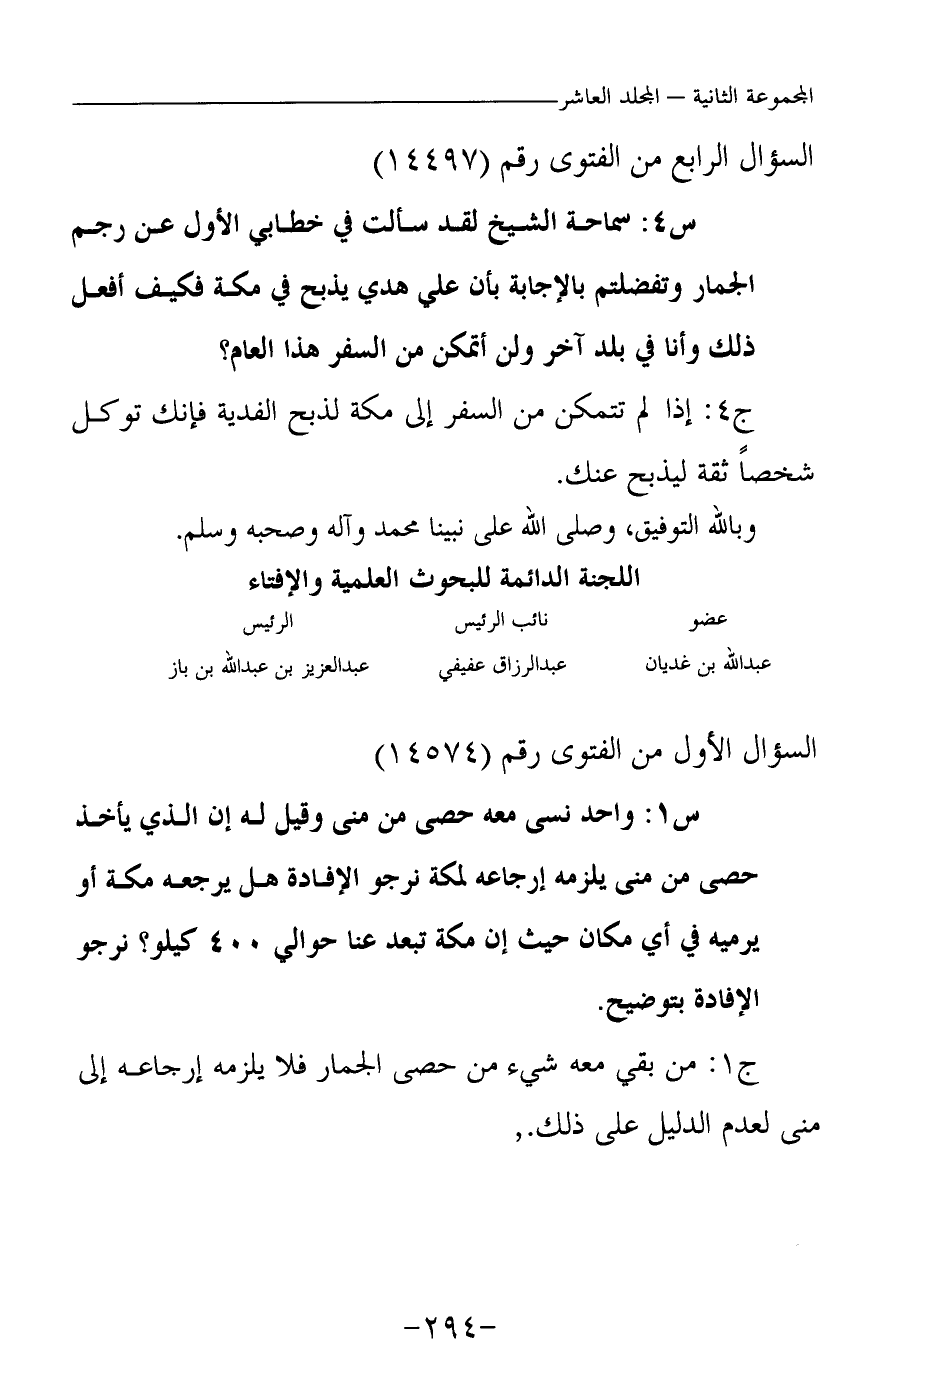 المجموعة الثانية – المجلد العاشر
السؤال الرابع من الفتوى رقم (١٤٤٩٧)
س٤: سماحة الشيخ لقد سألت في خطابي الأول عن رجم
الجمار وتفضلتم بالإجابة بأن علي هدي يذبح في مكة فكيف أفعل
ذلك وأنا في بلد آخر ولن أتمكن من السفر هذا العام؟
ج٤: إذا لم تتمكن من السفر إلى مكة لذبح الفدية فإنك توكل
شخصاً ثقة ليذبح عنك.
وبالله التوفيق، وصلى الله على نبينا محمد وآله وصحبه وسلم.
اللجنة الدائمة للبحوث العلمية والإفتاء
عضو نائب الرئيس الرئيس
عبدالله بن غديان عبدالرزاق عفيفي عبدالعزيز بن عبدالله بن باز
السؤال الأول من الفتوى رقم (١٤٥٧٤)
س١: واحد نسى معه حصى من منى وقيل له إن الذي يأخذ
حصى من منى يلزمه إرجاعه لمكة نرجو الإفادة هل يرجعه مكة أو
يرميه في أي مكان حيث إن مكة تبعد عنا حوالي ٤٠٠ كيلو؟ نرجو
الإفادة بتوضيح.
ج١: من بقي معه شيء من حصى الجمار فلا يلزمه إرجاعه إلى
منى لعدم الدليل على ذلك.,
-٢٩٤-